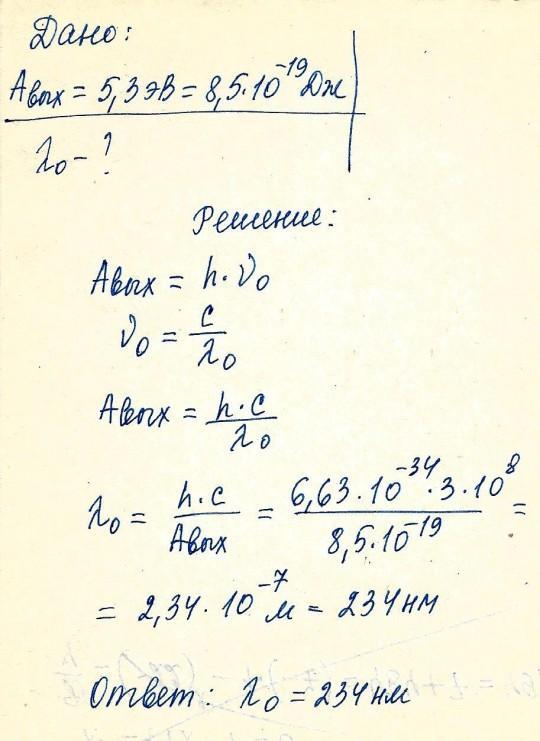 Дано:
Aвых = 5,3 эВ = 8,5·10⁻¹⁹ Дж
λ₀ - ?
Решение:
Aвых = h·ν₀
ν₀ = c/λ₀
Aвых = h·c/λ₀
λ₀ = h·c/Aвых = 6,63·10⁻³⁴·3·10⁸/8,5·10⁻¹⁹ =
= 2,34·10⁻⁷ м = 234 нм
Ответ: λ₀ = 234 нм